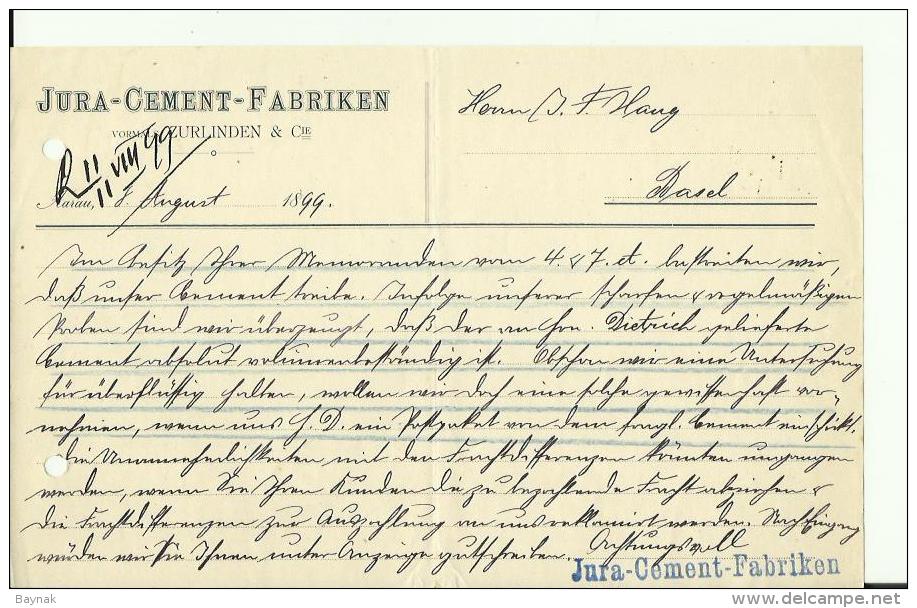 JURA-CEMENT-FABRIKEN
VORMALS ZURLINDEN & CIE
R 11
11 VIII 99
Aarau, 8. August 1899.
Herrn J. F. Haug
Basel
Im Besitz Ihrer Memoranden vom 4. & 7. ct. bestreiten wir,
daß unser Cement treibe. Infolge unserer scharfen & regelmäßigen
Proben sind wir überzeugt, daß der an Hrn. Dietrich gelieferte
Cement absolut volumenbeständig ist. Obschon wir eine Untersuchung
für überflüssig halten, wollen wir doch eine solche gewissenhaft vor-
nehmen, wenn uns H. D. ein Postpaket von dem fragl. Cement einschickt.
Die Unannehmlichkeiten mit den Frachtdifferenzen könnten umgangen
werden, wenn Sie Ihren Kunden die zu bezahlende Fracht abziehen &
die Frachtdifferenzen zur Auszahlung an uns reklamirt werden. Nach Eingang
würden wir sie Ihnen unter Anzeige gutschreiben. Achtungsvoll
Jura-Cement-Fabriken
Baynak
delcampe.net